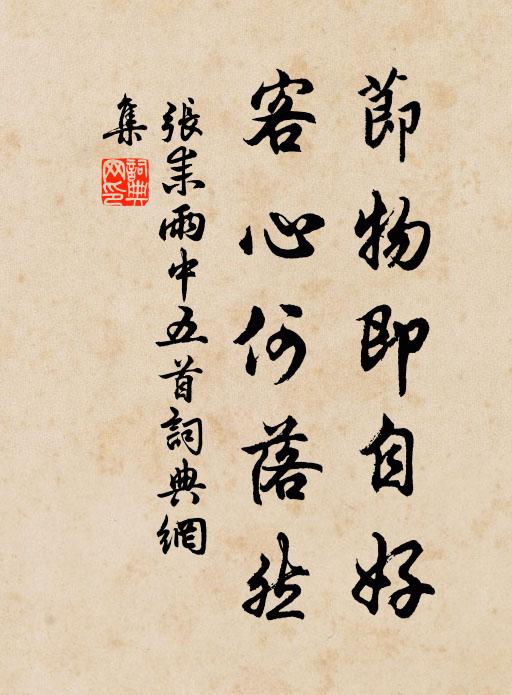 節物即自好
客心何落然
張耒雨中五首詞典網
集
詞典網印